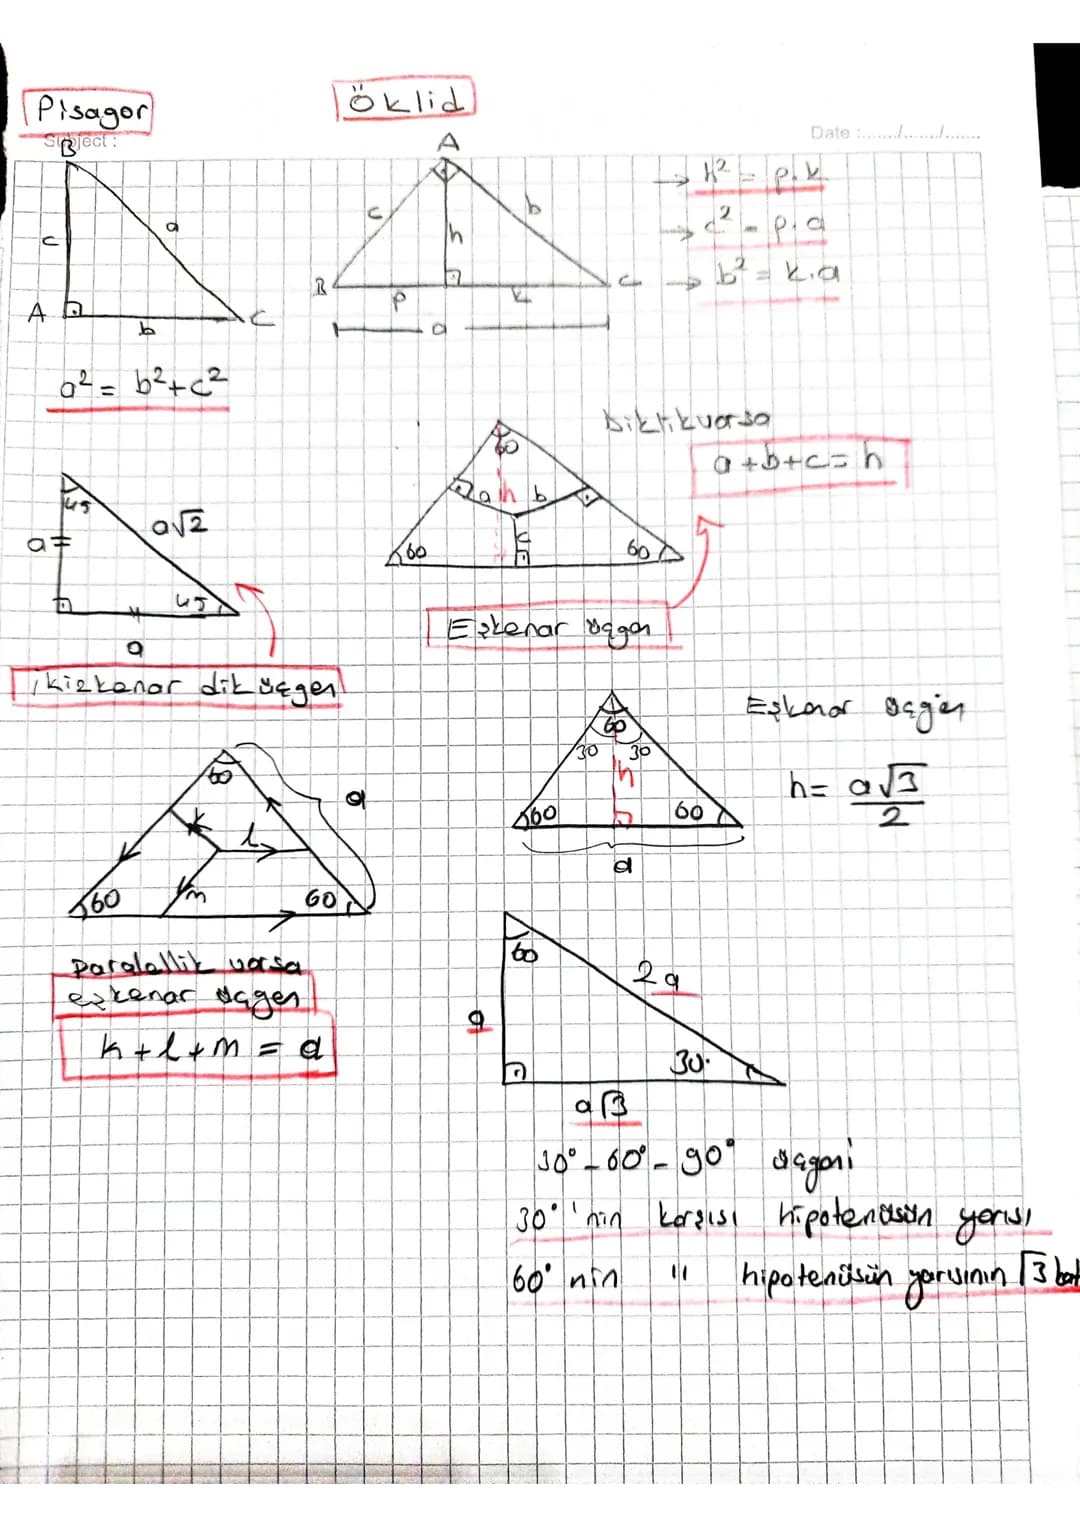 Pisagor
Öklid
Subject :
Date :......./......./.......
B
c
a
A
b
C
a² = b²+c²
A
c
b
h
B
p
k
C
a
→ h² = p.k
→ c² = p.a
→ b² = k.a
45
a
a√2
45
a
ikizkenar dik üçgen
Diklik varsa
a+b+c=h
60
a h b
c
60
60
Eşkenar üçgen
60
a
k
l
m
60
60
Paralellik varsa
eşkenar üçgen
k+l+m = a
60
30 30
h
60
60
a
Eşkenar üçgen
h= a√3
2
60
2a
a
30
a√3
30°-60°-90° üçgeni
30°'nin karşısı hipotenüsün yarısı
60° nin " hipotenüsün yarısının √3 katı